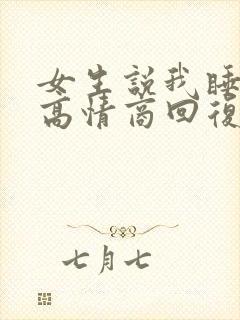 女生説我睡
高情商回復
七月七